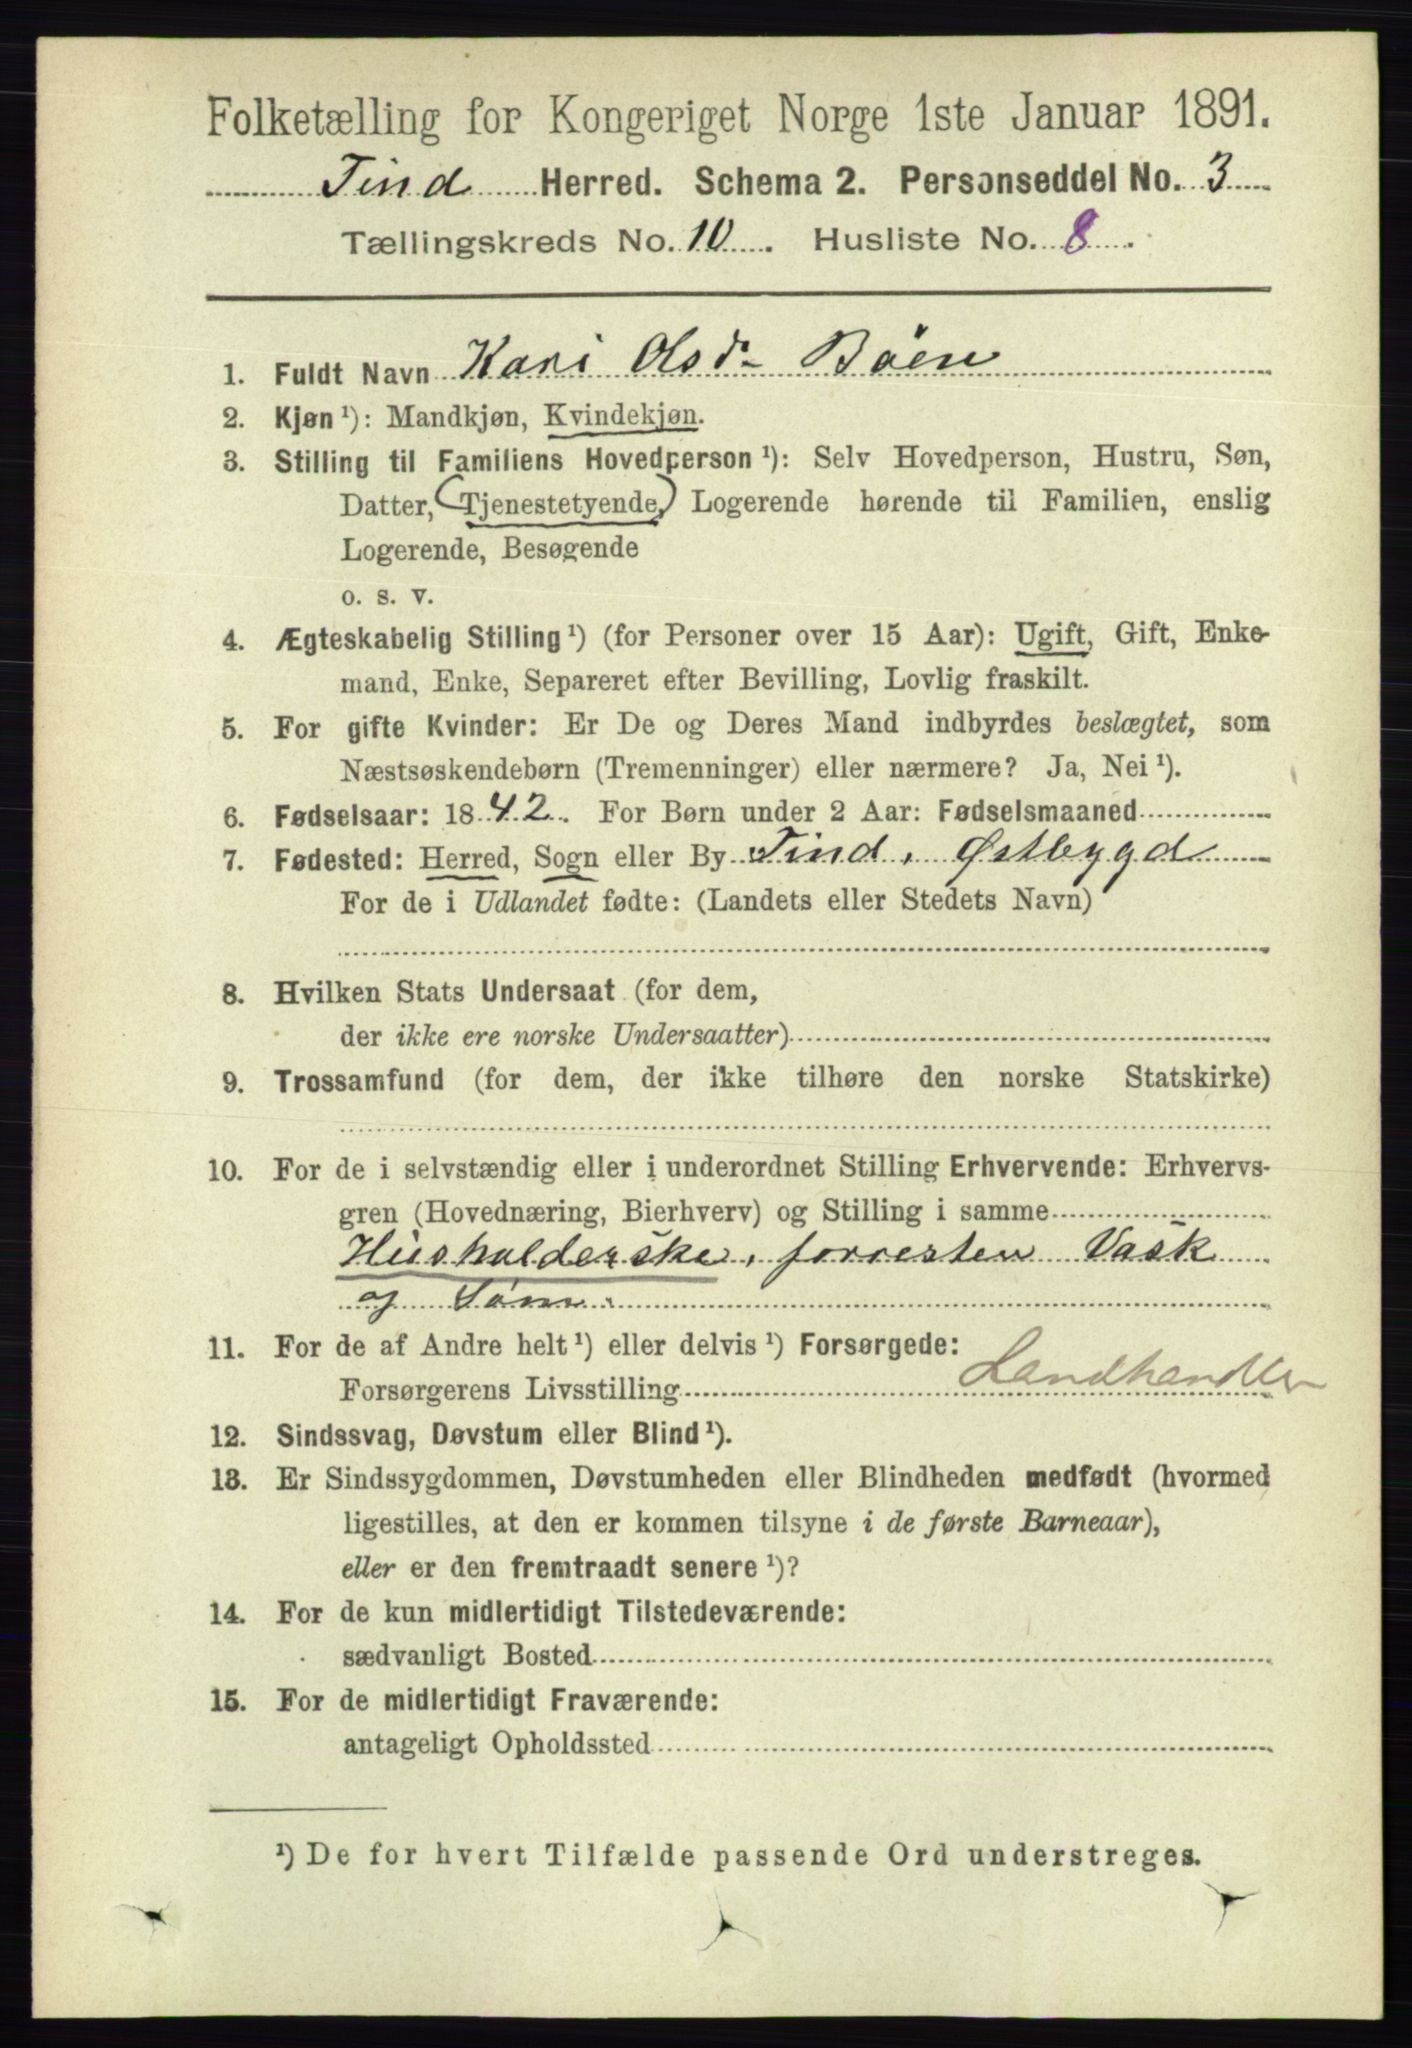 Folketælling for Kongeriget Norge 1ste Januar 1891.
Tind Herred. Schema 2. Personseddel No. 3
Tællingskreds No. 10. Husliste No. 8.
1. Fuldt Navn Kari Olsdr Bøen
2. Kjøn ¹): Mandkjøn, Kvindekjøn.
3. Stilling til Familiens Hovedperson ¹): Selv Hovedperson, Hustru, Søn,
Datter, (Tjenestetyende,) Logerende hørende til Familien, enslig
Logerende, Besøgende
o. s. v.
4. Ægteskabelig Stilling ¹) (for Personer over 15 Aar): Ugift, Gift, Enke-
mand, Enke, Separeret efter Bevilling, Lovlig fraskilt.
5. For gifte Kvinder: Er De og Deres Mand indbyrdes beslægtet, som
Næstsøskendebørn (Tremenninger) eller nærmere? Ja, Nei ¹).
6. Fødselsaar: 1842. For Børn under 2 Aar: Fødselsmaaned
7. Fødested: Herred, Sogn eller By Tind, Østbygd
For de i Udlandet fødte: (Landets eller Stedets Navn)
8. Hvilken Stats Undersaat (for dem,
der ikke ere norske Undersaatter)
9. Trossamfund (for dem, der ikke tilhøre den norske Statskirke)
10. For de i selvstændig eller i underordnet Stilling Erhvervende: Erhvervs-
gren (Hovednæring, Bierhverv) og Stilling i samme
Husholderske, forresten Vask
og Søm.
11. For de af Andre helt ¹) eller delvis ¹) Forsørgede:
Forsørgerens Livsstilling Landhandler
12. Sindssvag, Døvstum eller Blind ¹).
13. Er Sindssygdommen, Døvstumheden eller Blindheden medfødt (hvormed
ligestilles, at den er kommen tilsyne i de første Barneaar),
eller er den fremtraadt senere ¹)?
14. For de kun midlertidigt Tilstedeværende:
sædvanligt Bosted
15. For de midlertidigt Fraværende:
antageligt Opholdssted
¹) De for hvert Tilfælde passende Ord understreges.